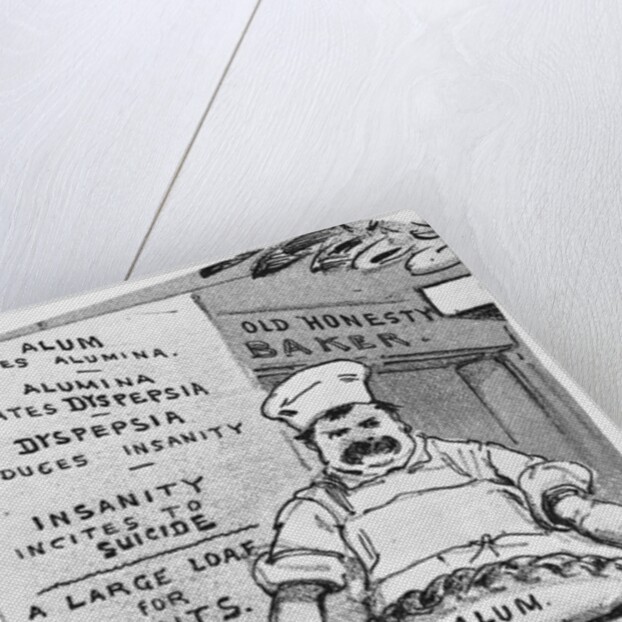 ALUM
ES ALUMINA.
ALUMINA
ATES DYSPEPSIA
DYSPEPSIA
DUCES INSANITY
INSANITY
INCITES TO
SUICIDE
A LARGE LOAF
FOR
NTS.
OLD HONESTY
BAKER.
ALUM.